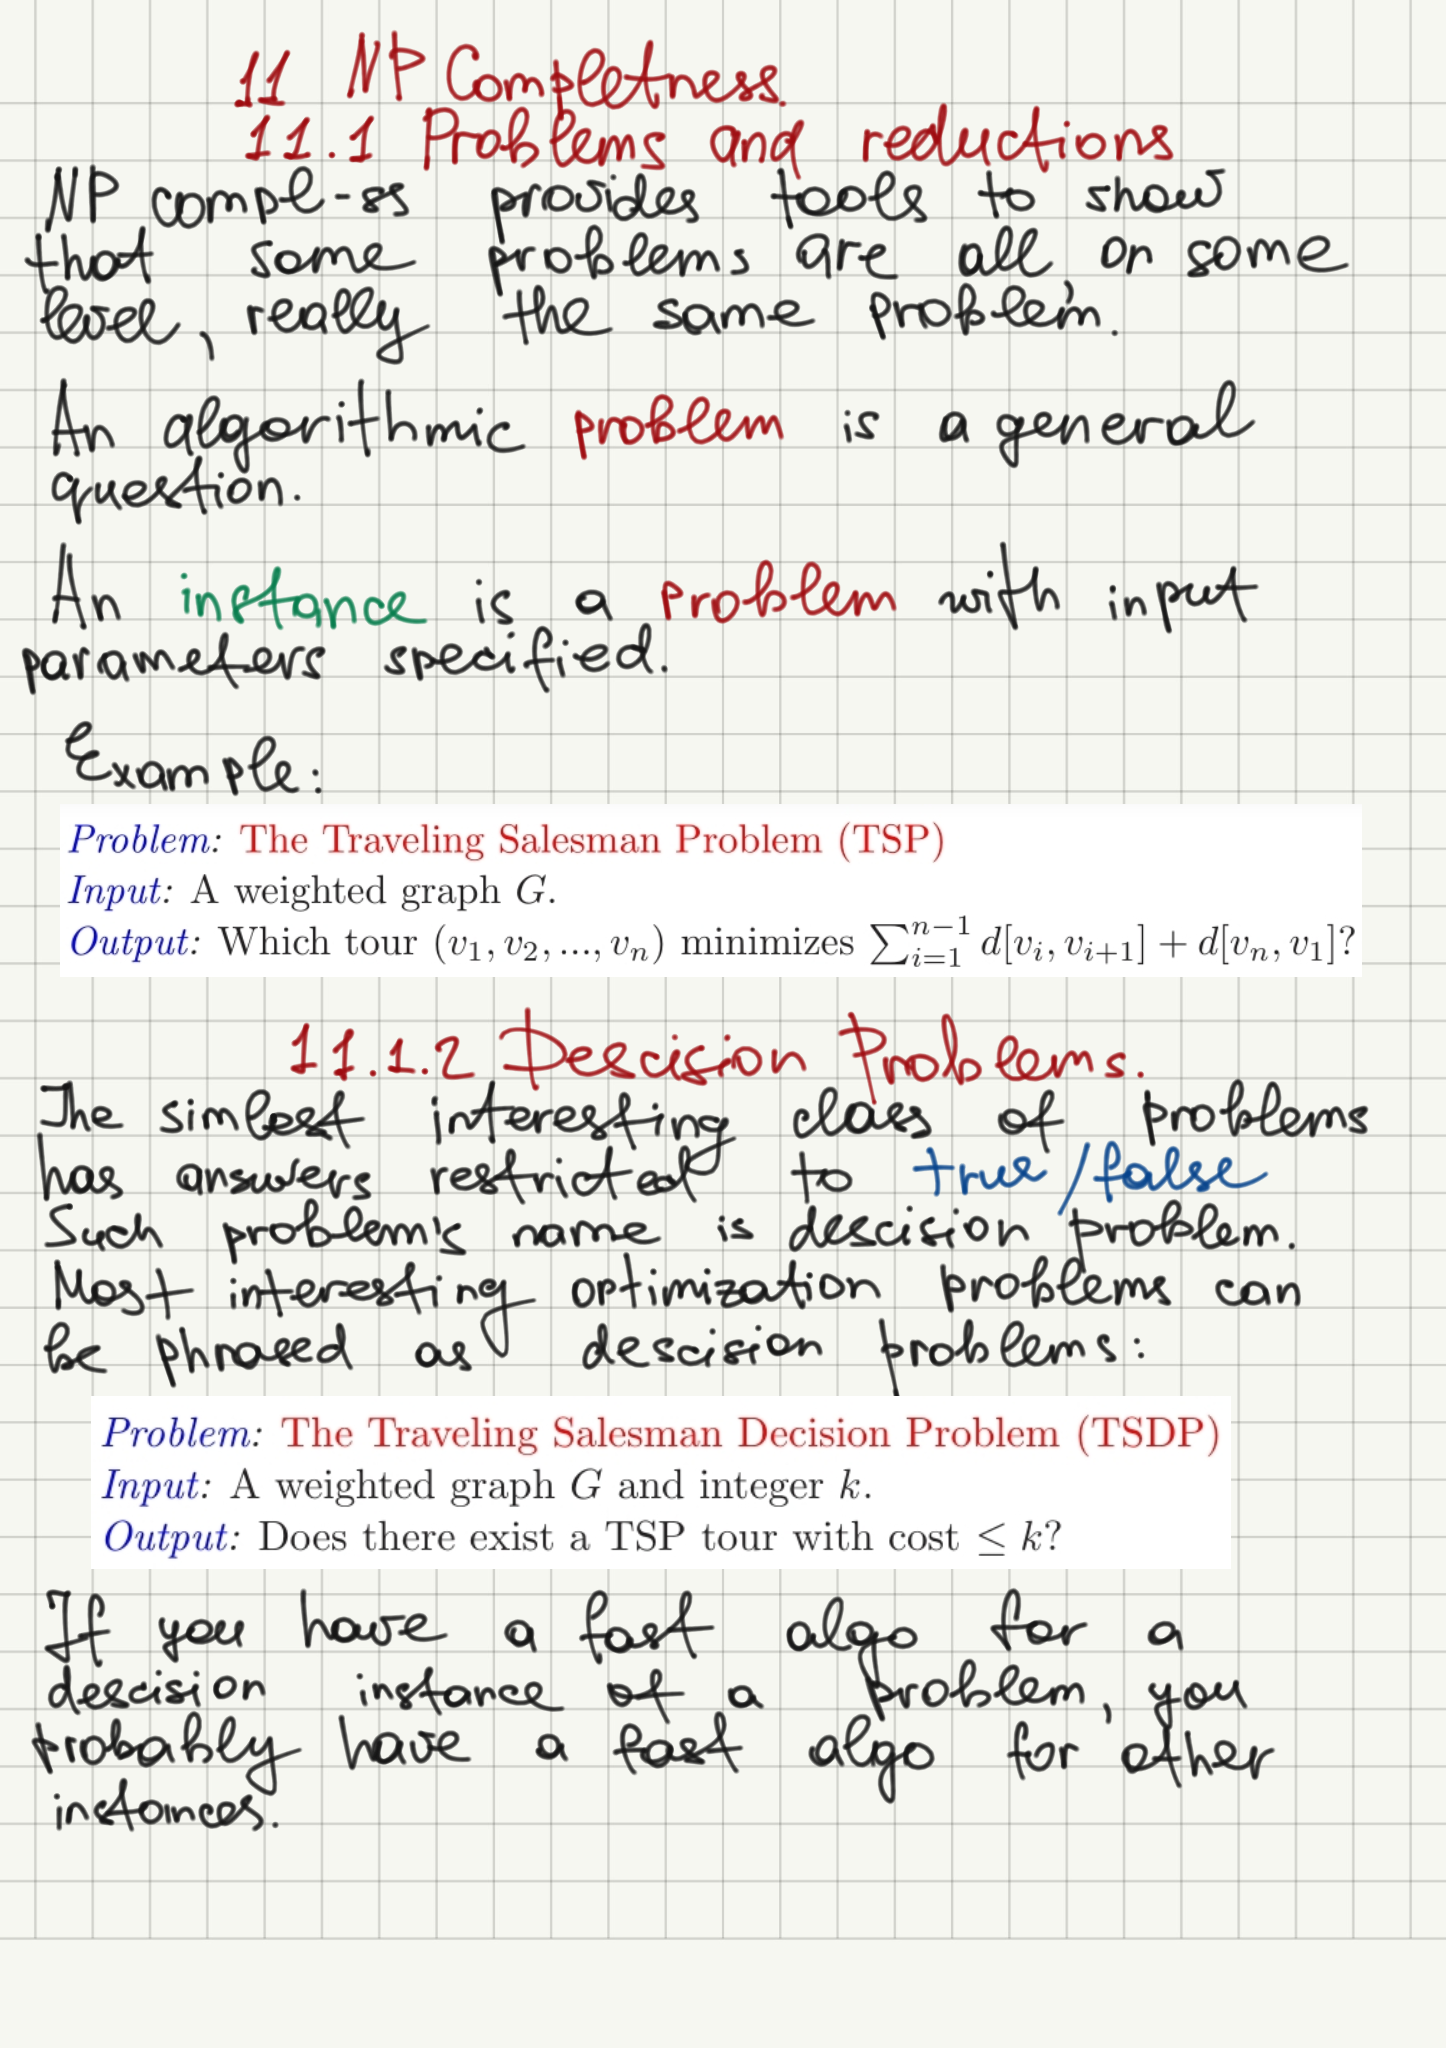 11 NP Completness.
11.1 Problems and reductions
NP compl-ss provides tools to show
that some problems are all, on some
level, really the same problem.
An algorithmic problem is a general
question.
An instance is a problem with input
parameters specified.
Example:
Problem: The Traveling Salesman Problem (TSP)
Input: A weighted graph G.
Output: Which tour (v₁, v₂, ..., vₙ) minimizes ∑ᵢ₌₁ⁿ⁻¹ d[vᵢ, vᵢ₊₁] + d[vₙ, v₁]?
11.1.2 Descision Problems.
The simlest interesting class of problems
has answers restricted to true/false
Such problem's name is descision problem.
Most interesting optimization problems can
be phrased as descision problems:
Problem: The Traveling Salesman Decision Problem (TSDP)
Input: A weighted graph G and integer k.
Output: Does there exist a TSP tour with cost ≤ k?
If you have a fast algo for a
descision instance of a problem, you
probably have a fast algo for other
instances.